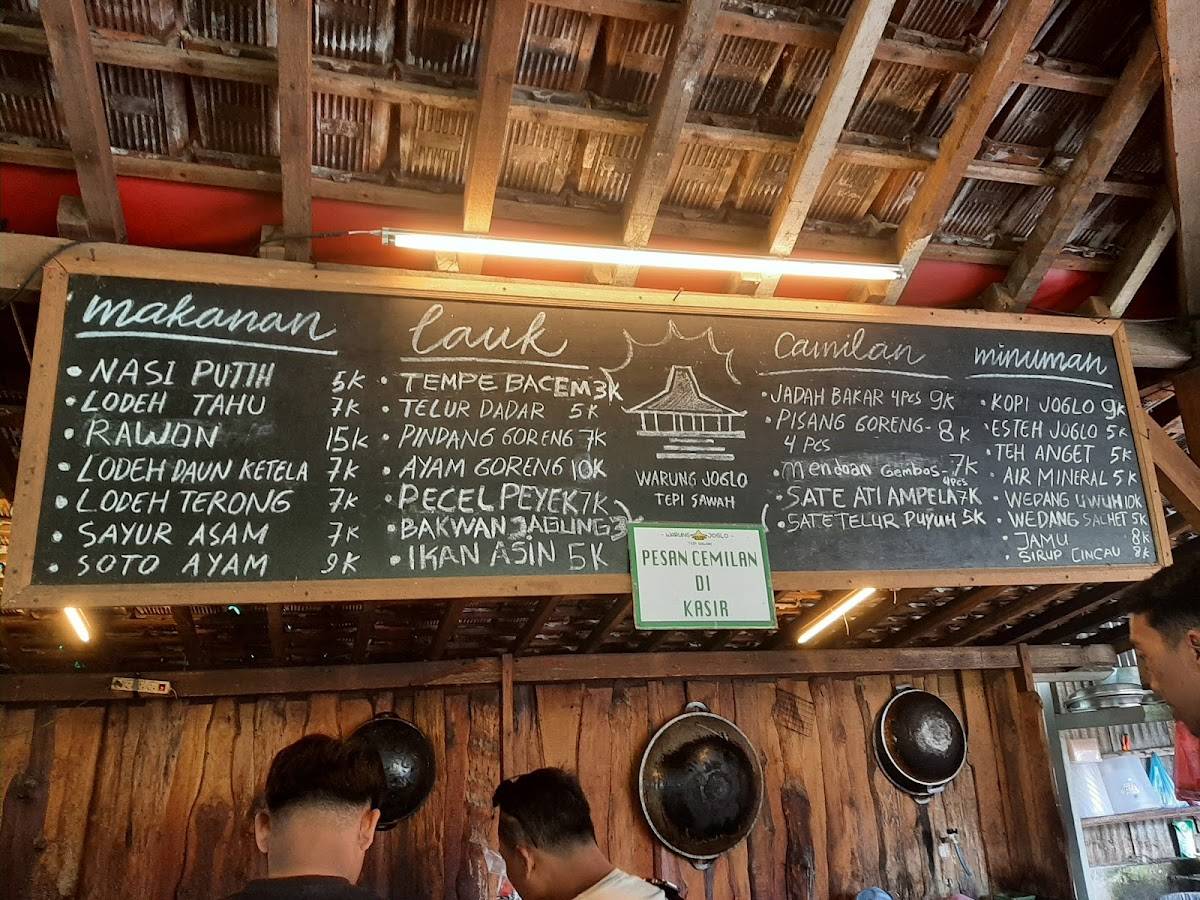 makanan
• NASI PUTIH 5K
• LODEH TAHU 7K
• RAWON 15K
• LODEH DAUN KETELA 7K
• LODEH TERONG 7K
• SAYUR ASAM 7K
• SOTO AYAM 9K
Lauk
• TEMPE BACEM 3K
• TELUR DADAR 5K
• PINDANG GORENG 7K
• AYAM GORENG 10K
• PECEL PEYEK 7K
• BAKWAN JAGUNG 3
• IKAN ASIN 5K
WARUNG JOGLO
TEPI SAWAH
- WARUNG JOGLO -
PESAN CEMILAN
DI
KASIR
Camilan
• JADAH BAKAR 4PCS 9K
• PISANG GORENG - 8K
4 PCS
• Mendoan Gembos - 7K
4PCS
• SATE ATI AMPELA 7K
• SATE TELUR PUYUH 5K
minuman
• KOPI JOGLO 9K
• ESTEH JOGLO 5K
• TEH ANGET 5K
AIR MINERAL 5K
• WEDANG UWUH 10K
• WEDANG SACHET 5K
• JAMU 8K
• SIRUP CINCAU 8K